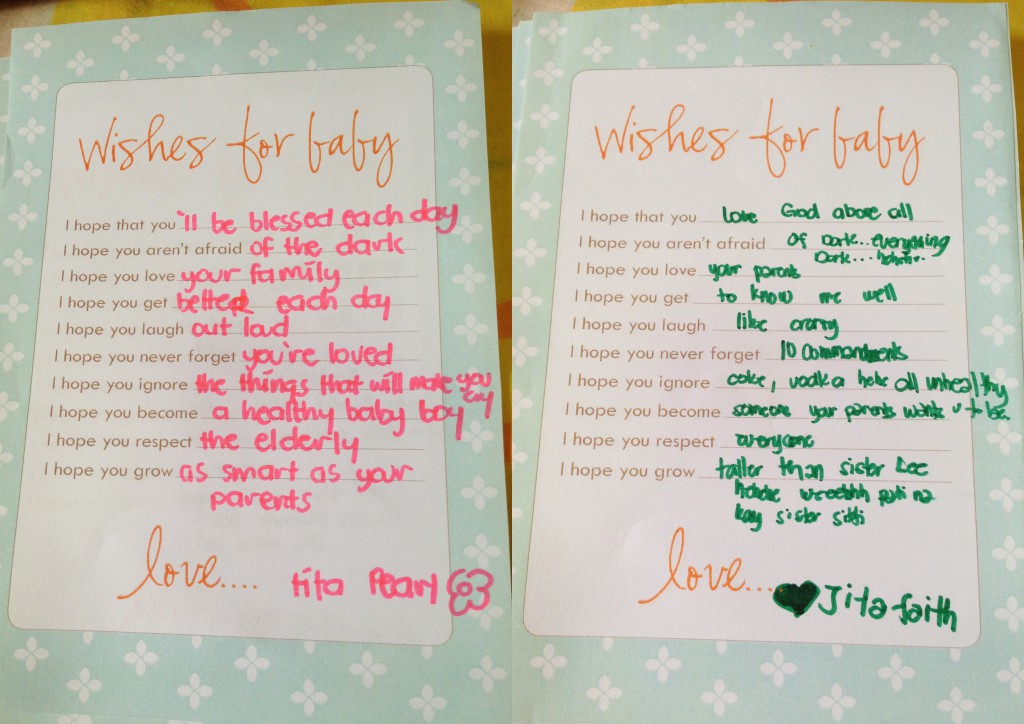 Wishes for baby
I hope that you 'll be blessed each day
I hope you aren't afraid of the dark
I hope you love your family
I hope you get better each day
I hope you laugh out loud
I hope you never forget you're loved
I hope you ignore the things that will make you
cry
I hope you become a healthy baby boy
I hope you respect the elderly
I hope you grow as smart as your
parents
love....
tita Pearl
Wishes for baby
I hope that you love God above all
I hope you aren't afraid of Dark.. everything
Dark...
I hope you love your parents
I hope you get to know me well
I hope you laugh like crazy
I hope you never forget 10 commandments
I hope you ignore coke, vodka hehe all unhealthy
I hope you become someone your parents wants u to be.
I hope you respect everyone
I hope you grow taller than sister Dee
hehehe pati na
kay sister sitti
love...
Tita faith